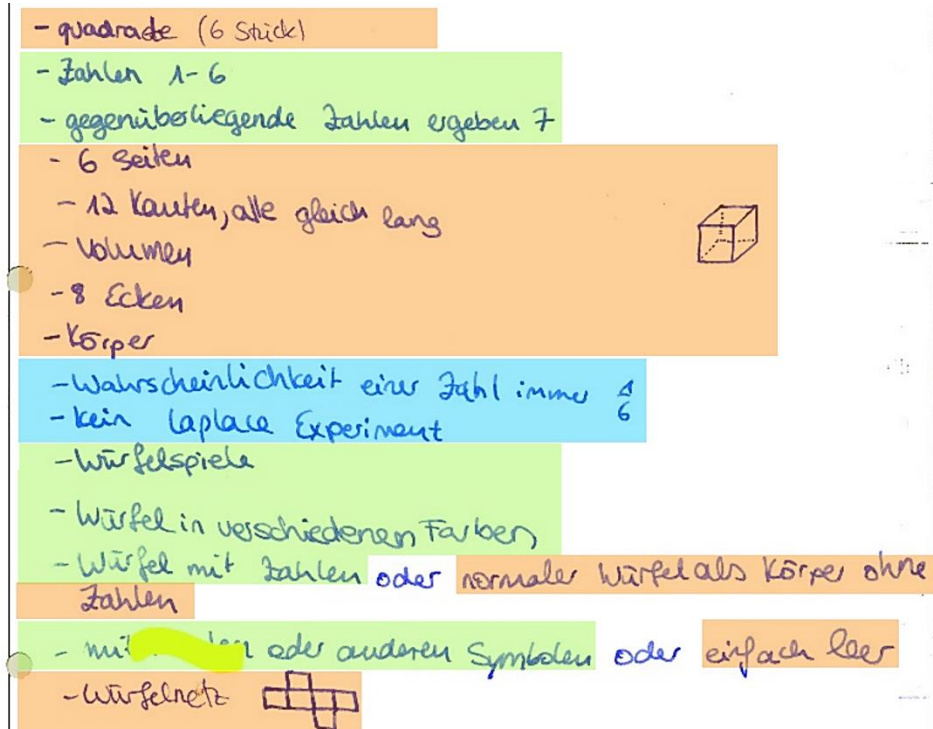 - quadrate (6 Stück)
- Zahlen 1-6
- gegenüberliegende Zahlen ergeben 7
- 6 Seiten
- 12 Kanten, alle gleich lang
- Volumen
- 8 Ecken
- Körper
- Wahrscheinlichkeit einer Zahl immer 1/6
- kein Laplace Experiment
- Würfelspiele
- Würfel in verschiedenen Farben
- Würfel mit Zahlen oder normaler Würfel als Körper ohne
Zahlen
- mit oder anderen Symbolen oder einfach leer
- Würfelnetz